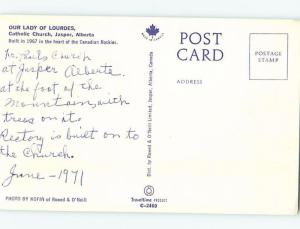 OUR LADY OF LOURDES,
Catholic Church, Jasper, Alberta
Built in 1967 in the heart of the Canadian Rockies.
Church
at Jasper Alberta.
at the foot of the
Mountain, with
trees on it.
Rectory is built on to
the Church.
June - 1971
PHOTO BY KOFIN of Roxed & O'Neill
Dist. by Roxed & O'Neill Limited, Jasper, Alberta, Canada
Traveltime PRODUCT
C-2460
POST CARD
ADDRESS
PLACE
POSTAGE
STAMP